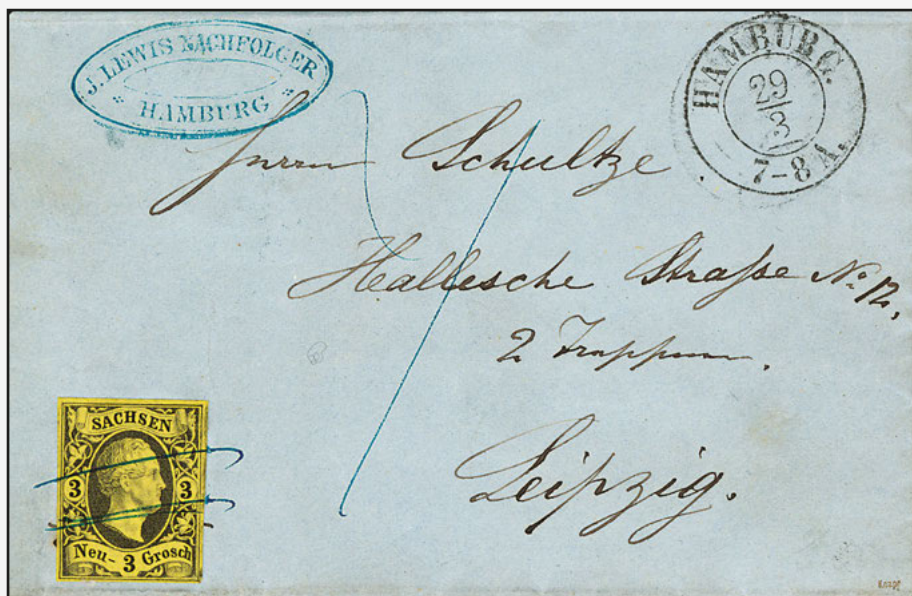 J. LEWIS NACHFOLGER
HAMBURG
HAMBURG.
29/3
7-8 A.
Herrn Schultze.
Hallesche Straſse No. 12,
2 Treppen.
Leipzig.
SACHSEN
3 3
Neu- 3 Grosch